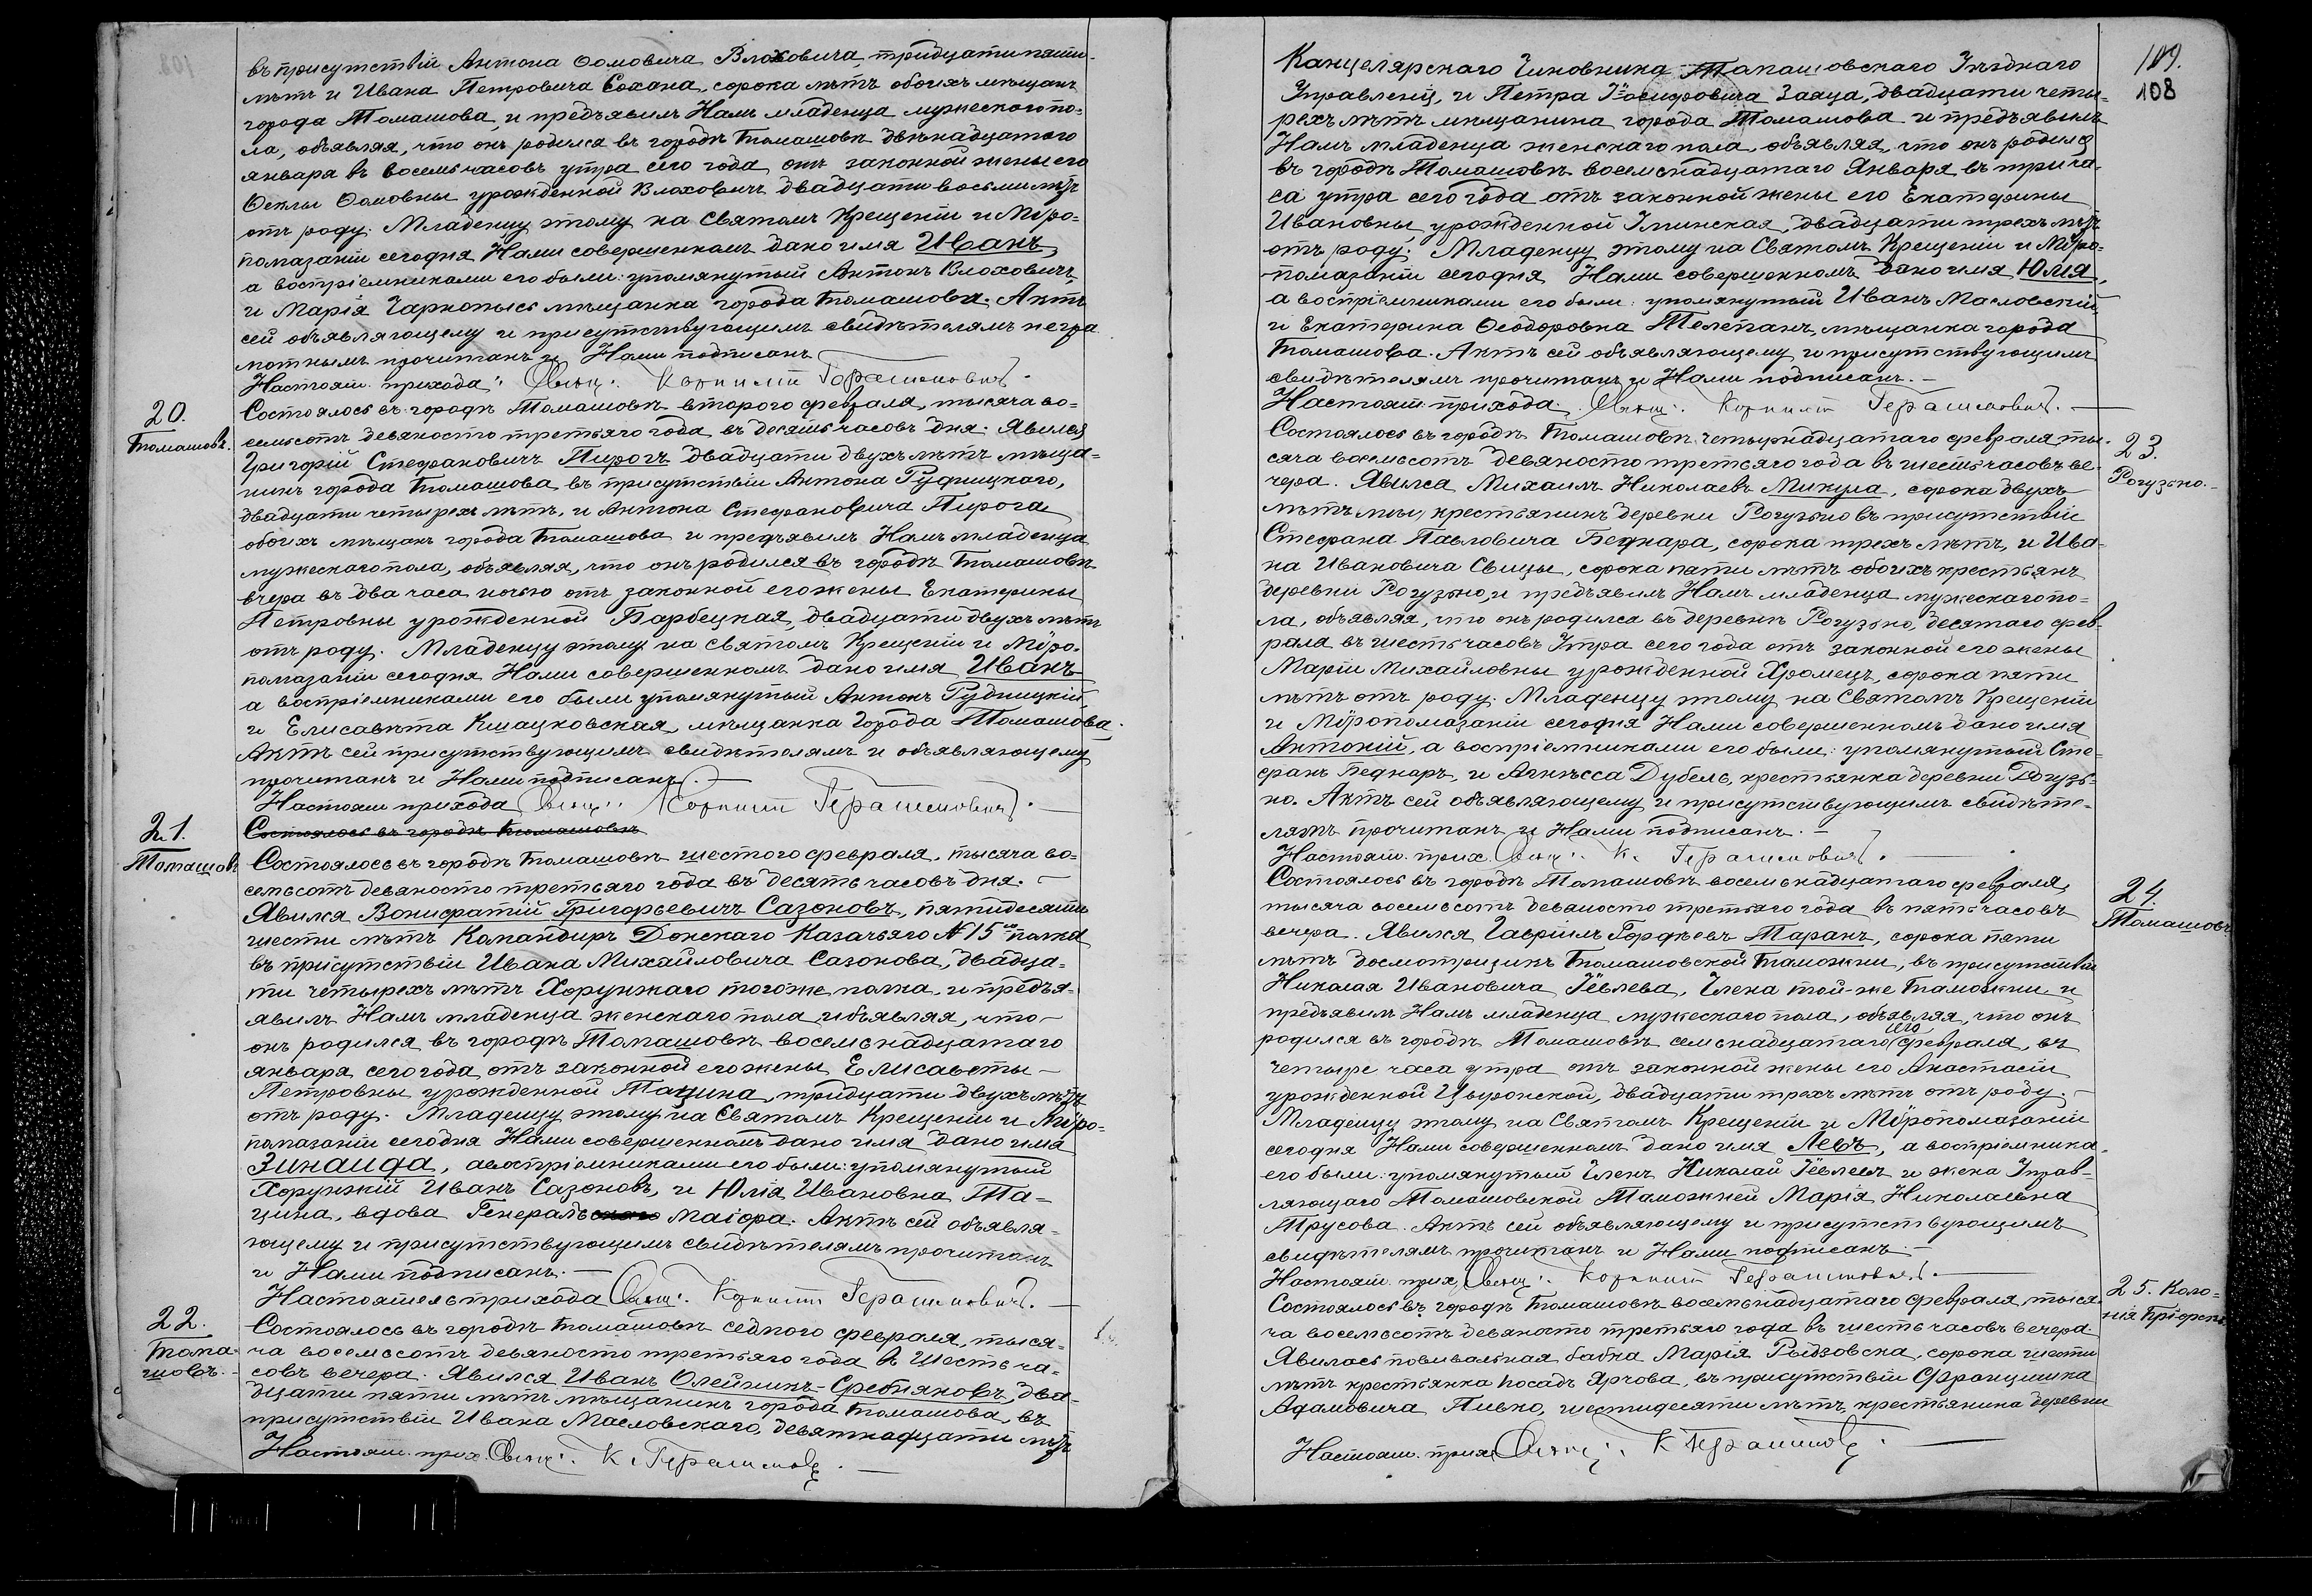 въ присутствіи Антона Ѳомовича Влоховича, тридцати пяти
лѣтъ и Ивана Петровича Сохана, сорока лѣтъ обоихъ мѣщанъ
города Томашова, и предъявилъ Намъ младенца мужескаго по-
ла, объявляя, что онъ родился въ городѣ Томашовѣ двѣнадцатаго
января въ восемь часовъ утра сего года отъ законной жены его
Ѳеклы Ѳомовны урожденной Влоховичъ двадцати восьми лѣтъ
отъ роду. Младенцу этому на Святомъ Крещеніи и Мѵро-
помазаніи сегодня Нами совершенномъ дано имя Иванъ,
а воспріемниками его были: упомянутый Антонъ Влоховичъ,
и Марія Чаркопысъ мѣщанка города Томашова. Актъ
сей объявляющему и присутствующимъ свидѣтелямъ негра
мотнымъ прочитанъ и Нами подписанъ
Настоят. прихода: Свящ. Корнилій Герасимовичъ.
20.
Томашовъ.
Состоялось въ городѣ Томашовѣ второго февраля, тысяча во-
семьсотъ девяносто третьяго года въ десять часовъ дня. Явился
Григорій Стефановичъ Пирогъ двадцати двухъ лѣтъ мѣща-
нинъ города Томашова въ присутствіи Антона Рудницкаго,
двадцати четырехъ лѣтъ, и Антона Стефановича Пирога
обоихъ мѣщанъ города Томашова и предъявилъ Намъ младенца
мужескаго пола, объявляя, что онъ родился въ городѣ Томашовѣ
вчера въ два часа ночью отъ законной его жены Екатерины
Петровны урожденной Барбецкая, двадцати двухъ лѣтъ
отъ роду. Младенцу этому на Святомъ Крещеніи и Мѵро-
помазаніи сегодня Нами совершенномъ дано имя Иванъ
а воспріемниками его были упомянутый Антонъ Рудницкій,
и Елисавета Кшацковская, мѣщанка города Томашова.
Актъ сей присутствующимъ свидѣтелямъ и объявляющему
прочитанъ и Нами подписанъ. —
Настоят. прихода Свящ. Корнилій Герасимовичъ. —
21.
Томашовъ
Состоялось въ городѣ Томашовѣ
Состоялось въ городѣ Томашовѣ шестого февраля, тысяча во-
семьсотъ девяносто третьяго года въ десять часовъ дня. —
Явился Вонифатій Григорьевичъ Сазоновъ, пятидесяти
шести лѣтъ Командиръ Донскаго Казачьяго № 15го полка
въ присутствіи Ивана Михайловича Сазонова, двадца-
ти четырехъ лѣтъ Хорунжаго тогоже полка, и предъя-
явилъ Намъ младенца женскаго пола, объявляя, что —
онъ родился въ городѣ Томашовѣ восемьнадцатаго
января сего года отъ законной его жены Елисаветы —
Петровны урожденной Тацина, тридцати двухъ лѣтъ
отъ роду. Младенцу этому на Святомъ Крещеніи и Мѵро-
помазаніи сегодня Нами совершенномъ дано имя дано имя
Зинаида, авоспріемниками его были: упомянутый
Хорунжій Иванъ Сазоновъ, и Юлія Ивановна Та-
цина, вдова Генералъ Маіора. Актъ сей объявля-
ющему и присутствующимъ свидѣтелямъ прочитанъ
и Нами подписанъ. —
Настоятель прихода Свящ. Корнилій Герасимовичъ. —
22.
Тома
шовъ.
Состоялось въ городѣ Томашовѣ седмого февраля, тыся-
ча восемьсотъ девяносто третьяго года въ шесть ча-
совъ вечера. Явился Иванъ Олейникъ-Сребняковъ, два-
дцати пяти лѣтъ мѣщанинъ города Томашова, въ
присутствіи Ивана Масловскаго, девятнадцати лѣтъ
Настоят. прих. Свящ. К. Герасимов
109.
108
Канцелярскаго Чиновника Томашовскаго Уѣзднаго
Управленія, и Петра Іосифовича Заяца, двадцати четы-
рехъ лѣтъ мѣщанина города Томашова и предъявилъ
Намъ младенца женскаго пола, объявляя, что онъ родился
въ городѣ Томашовѣ восемнадцатаго Января въ три ча-
са утра сего года отъ законной жены его Екатерины
Ивановны урожденной Зминская, двадцати трехъ лѣтъ
отъ роду. Младенцу этому на Святомъ Крещеніи и Мѵро-
помазаніи сегодня Нами совершенномъ дано имя Юлія,
а воспріемниками его были: упомянутый Иванъ Масловскій,
и Екатерина Ѳеодоровна Телепанъ, мѣщанка города
Томашова. Актъ сей объявляющему и присутствующимъ
свидѣтелямъ прочитанъ и Нами подписанъ. —
Настоят. прихода. Свящ. Корнилій Герасимовичъ. —
23.
Рогузьно.
Состоялось въ городѣ Томашовѣ, четырнадцатаго февраля ты-
сяча восемьсотъ девяносто третьяго года въ шесть часовъ ве-
чера. Явился Михаилъ Николаевъ Микула, сорока двухъ
лѣтъ крестьянинъ деревни Рогузьно въ присутствіи
Стефана Павловича Беднара, сорока трехъ лѣтъ, и Ива-
на Ивановича Свицы, сорока пяти лѣтъ обоихъ крестьянъ
деревни Рогузьно, и предъявилъ Намъ младенца мужескаго по-
ла, объявляя, что онъ родился въ деревнѣ Рогузьно, десятаго фев-
раля въ шесть часовъ утра сего года отъ законной его жены
Маріи Михайловны урожденной Хромецъ, сорока пяти
лѣтъ отъ роду. Младенцу этому на Святомъ Крещеніи
и Мѵропомазаніи сегодня Нами совершенномъ дано имя
Антоній, а воспріемниками его были: упомянутый Сте-
фанъ Беднаръ, и Агнѣсса Дубель, крестьянка деревни Рогузь-
но. Актъ сей объявляющему и присутствующимъ свидѣте-
лямъ прочитанъ и Нами подписанъ. —
Настоят. прих. Свящ. К. Герасимовичъ. —
24.
Томашовъ
Состоялось въ городѣ Томашовѣ восемьнадцатаго февраля,
тысяча восемьсотъ девяносто третьяго года въ пять часовъ
вечера. Явился Гавріилъ Гордѣевъ Таранъ, сорока пяти
лѣтъ досмотрщикъ Томашовской Таможни, въ присутствіи
Николая Ивановича Іевлева, Члена той-же Таможни и
предъявилъ Намъ младенца мужескаго пола, объявляя, что онъ
родился въ городѣ Томашовѣ семьнадцатаго сего февраля, въ
четыре часа утра отъ законной жены его Анастасіи
урожденной Цыронской, двадцати трехъ лѣтъ отъ роду. —
Младенцу этому на Святомъ Крещеніи и Мѵропомазаніи
сегодня Нами совершенномъ дано имя Левъ, а воспріемника
его были: упомянутый Членъ Николай Іевлевъ и жена Управ-
ляющаго Томашовской Таможней Марія Николаевна
Трусова. Актъ сей объявляющему и присутствующимъ
свидѣтелямъ прочитанъ и Нами подписанъ —
Настоят. прих. Свящ. Корнилій Герасимовичъ. —
25. Коло-
нія
Состоялось въ городѣ Томашовѣ восемьнадцатаго февраля, тыся-
ча восемьсотъ девяносто третьяго года въ шесть часовъ вечера
Явилась повивальная бабка Марія Рыдзовска, сорока шести
лѣтъ крестьянка посадъ Ярчова, въ присутствіи Францишка
Адамовича Пивко, шестидесяти лѣтъ, крестьянина деревни
Настоят. прих. Свящ. К Герасимов